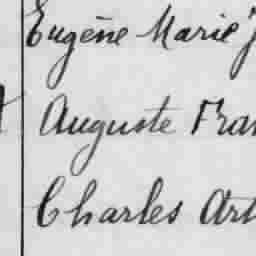 Eugène Marie J
Auguste Fran
Charles Art